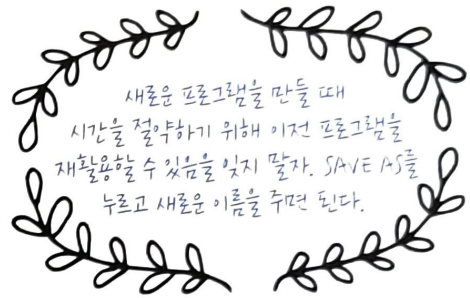 새로운 프로그램을 만들 때
시간을 절약하기 위해 이전 프로그램을
재활용할 수 있음을 잊지 말자. SAVE AS를
누르고 새로운 이름을 주면 된다.